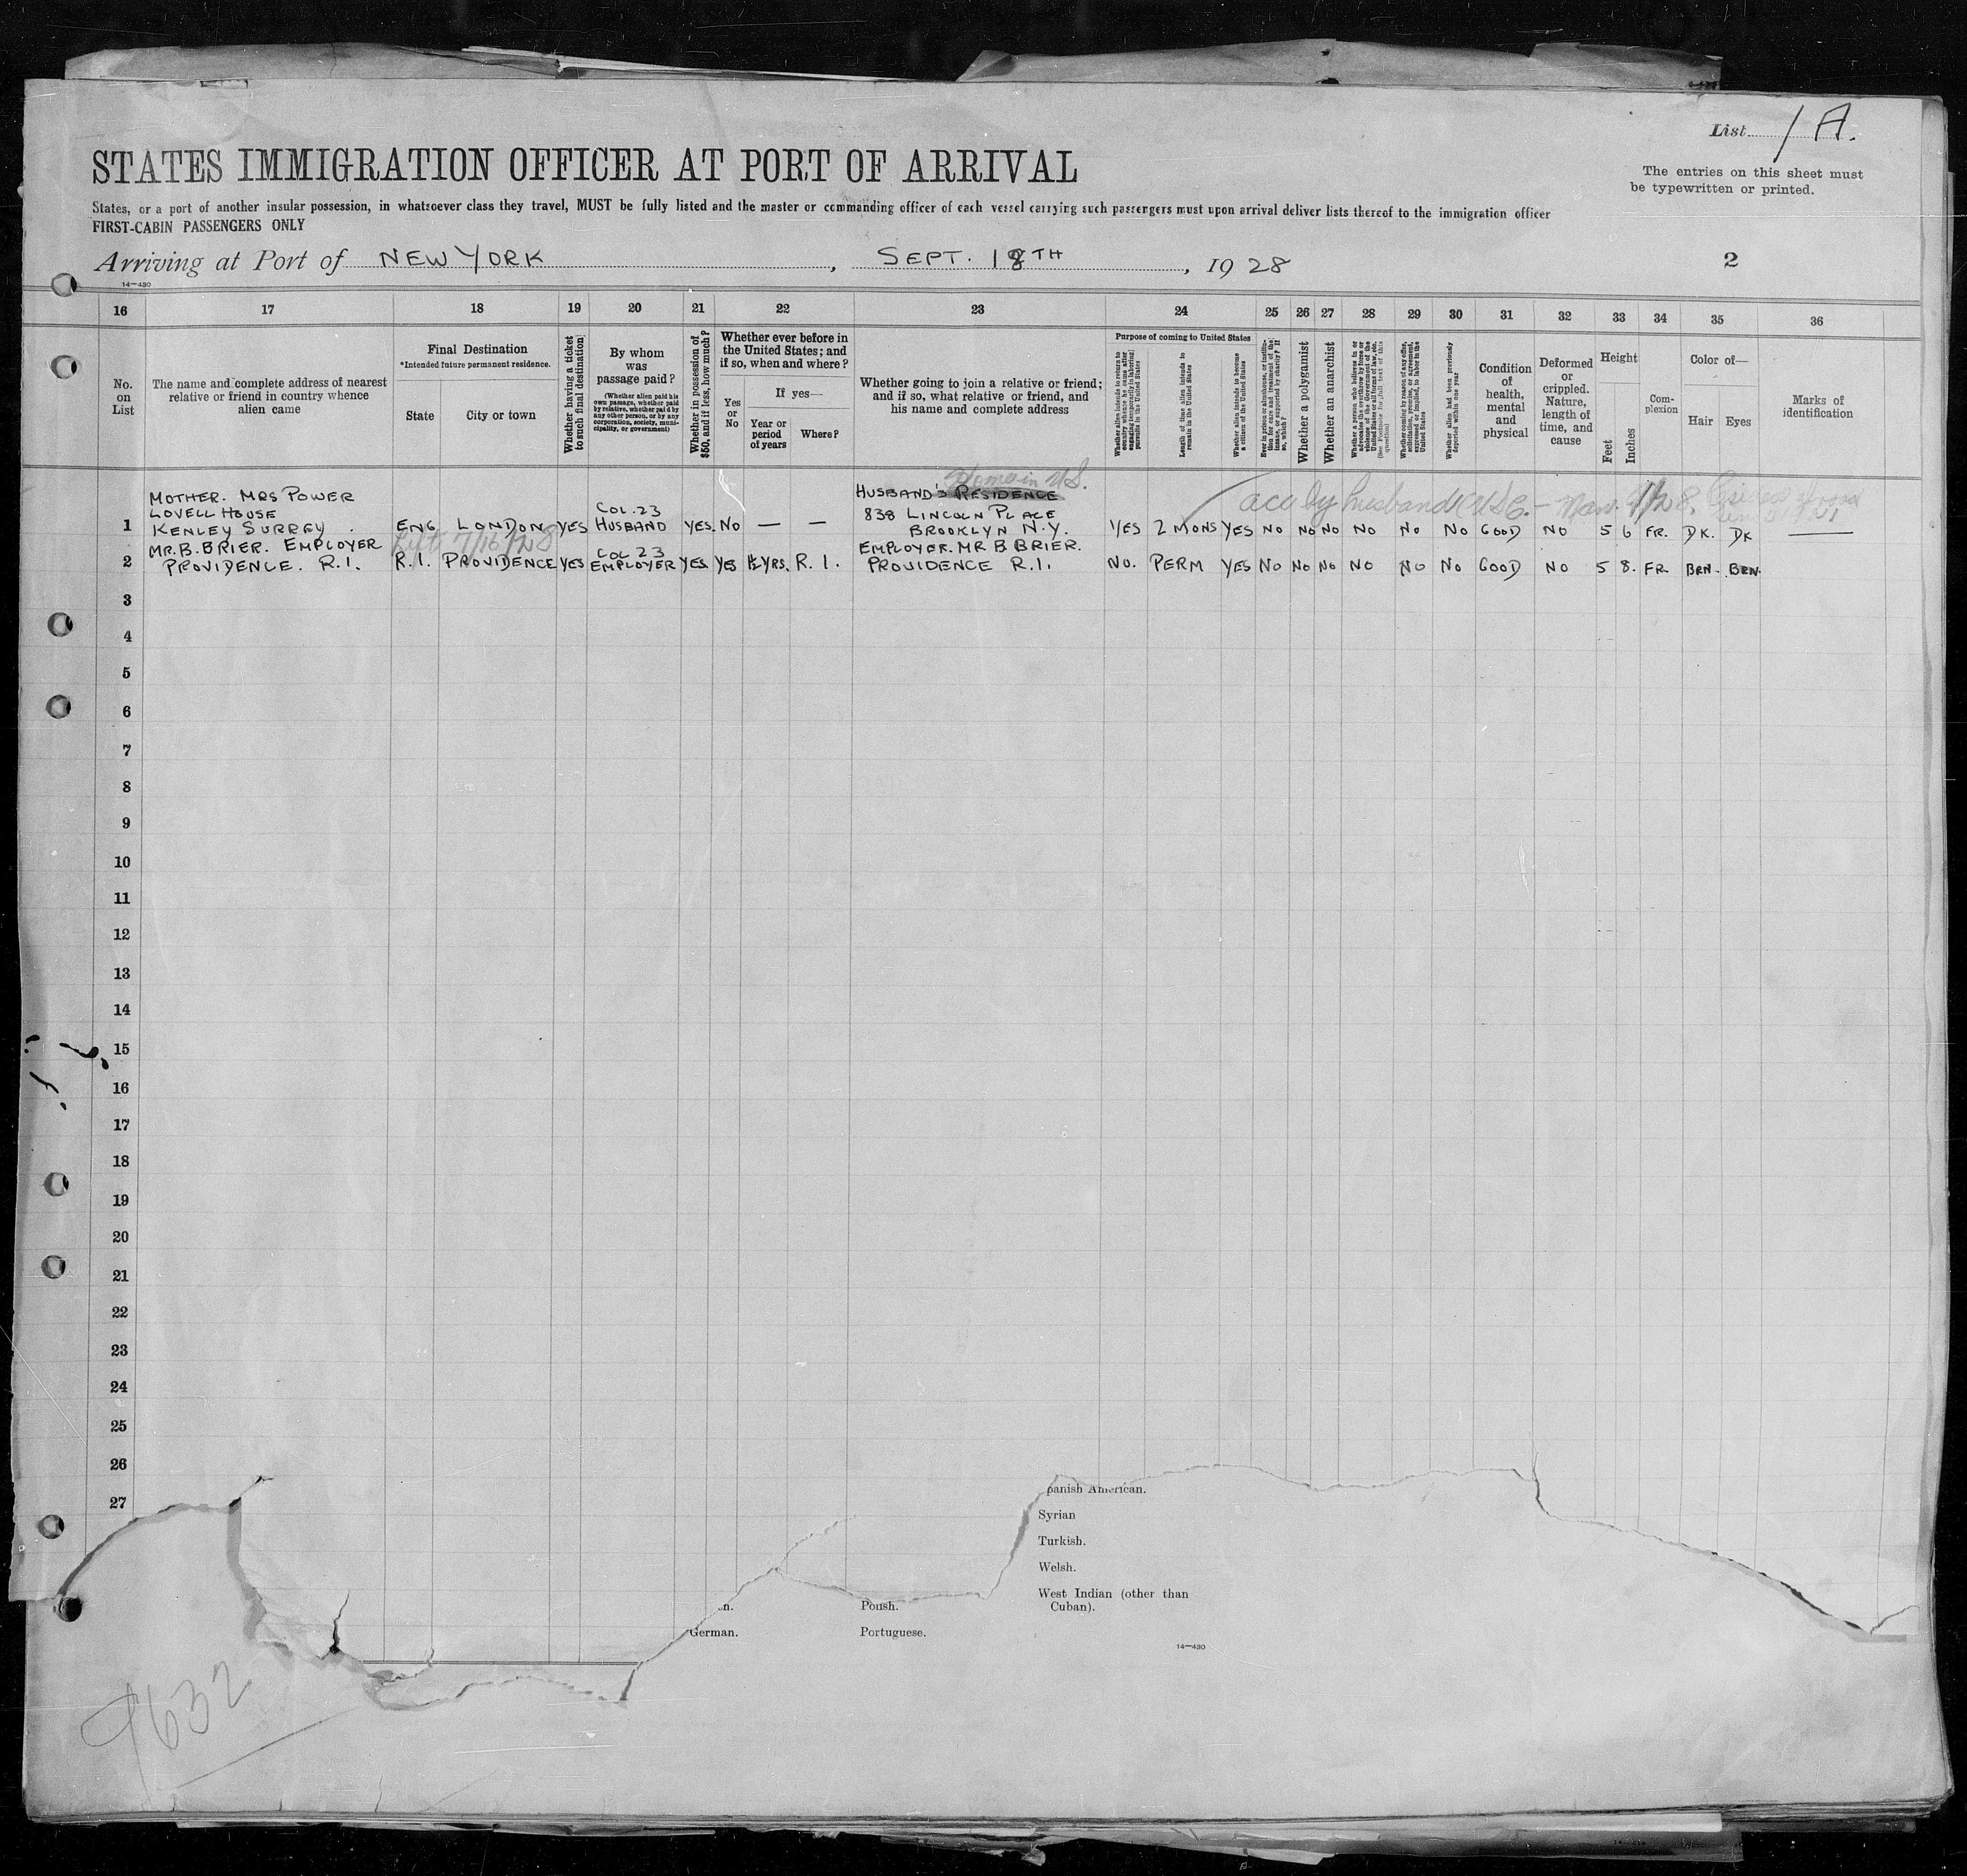 List 1 A.
STATES IMMIGRATION OFFICER AT PORT OF ARRIVAL
The entries on this sheet must
be typewritten or printed.
States, or a port of another insular possession, in whatsoever class they travel, MUST be fully listed and the master or commanding officer of each vessel carrying such passengers must upon arrival deliver lists thereof to the immigration officer
FIRST-CABIN PASSENGERS ONLY
Arriving at Port of NEW YORK, SEPT. 18TH, 1928
2
14—430
16 17 18 19 20 21 22 23 24 25 26 27 28 29 30 31 32 33 34 35 36
No. on List
The name and complete address of nearest relative or friend in country whence alien came
Final Destination
*Intended future permanent residence.
State
City or town
Whether having a ticket to such final destination
By whom was passage paid?
(Whether alien paid his own passage, whether paid by relative, whether paid by any other person, or by any corporation, society, municipality, or government)
Whether in possession of $50, and if less, how much?
Whether ever before in the United States; and if so, when and where?
Yes or No
If yes—
Year or period of years
Where?
Whether going to join a relative or friend; and if so, what relative or friend, and his name and complete address
Purpose of coming to United States
Whether alien intends to return to country whence he came after engaging temporarily in laboring pursuits in the United States
Length of time alien intends to remain in the United States
Whether alien intends to become a citizen of the United States
Ever in prison or almshouse, or institution for care and treatment of the insane, or supported by charity? If so, which?
Whether a polygamist
Whether an anarchist
Whether a person who believes in or advocates the overthrow by force or violence of the Government of the United States or all forms of law, etc. (See Footnote for full text of this question)
Whether coming by reason of any offer, solicitation, promise, or agreement, expressed or implied, to labor in the United States
Whether alien had been previously deported within one year
Condition of health, mental and physical
Deformed or crippled. Nature, length of time, and cause
Height
Feet
Inches
Complexion
Color of—
Hair
Eyes
Marks of identification
MOTHER. MRS POWER
LOVELL HOUSE
1 KENLEY SURREY. ENG LONDON YES COL. 23 HUSBAND YES. NO — —
HUSBAND'S RESIDENCE
838 LINCOLN PLACE
BROOKLYN N.Y. YES 2 MONS YES NO NO NO NO NO NO GOOD NO 5 6 FR. DK. DK —
acc by husband USC. - Mar.
7/16/28
MR. B. BRIER. EMPLOYER
2 PROVIDENCE. R.I. R.I. PROVIDENCE YES COL 23 EMPLOYER YES YES 1½ YRS. R.I.
EMPLOYER. MR B BRIER.
PROVIDENCE R.I. NO. PERM YES NO NO NO NO NO NO GOOD NO 5 8. FR BRN. BRN.
3
4
5
6
7
8
9
10
11
12
13
14
15
16
17
18
19
20
21
22
23
24
25
26
27
panish American.
Syrian
Turkish.
Welsh.
West Indian (other than
Cuban).
German.
Polish.
Portuguese.
14—430
9632